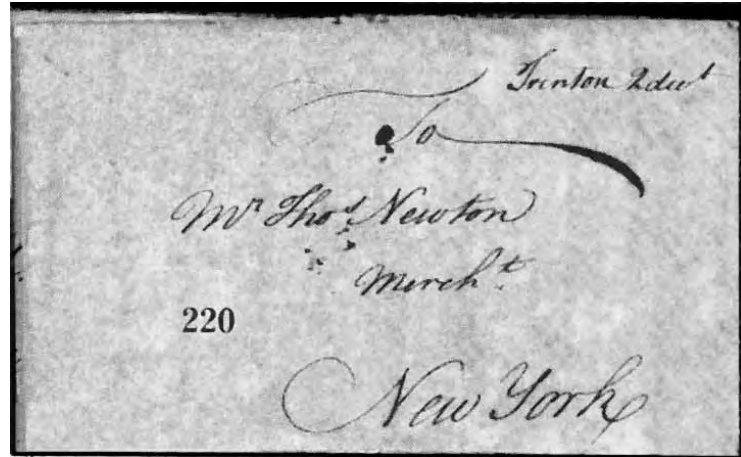 Trenton 2dwt
To
Mr Thos Newton
Mercht.
220
New York